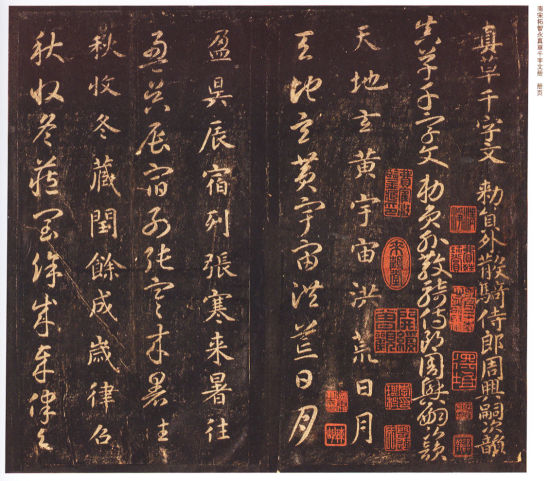 南宋拓智永真草千字文册 册页
真草千字文 勅員外散騎侍郎周興嗣次韻
真草千字文 勅員外散騎侍郎周興嗣次韻
天地玄黃宇宙洪荒日月
天地玄黃宇宙洪荒日月
盈昃辰宿列張寒来暑往
盈昃辰宿列張寒来暑往
秋收冬藏閏餘成歲律吕
秋收冬藏閏餘成歲律吕